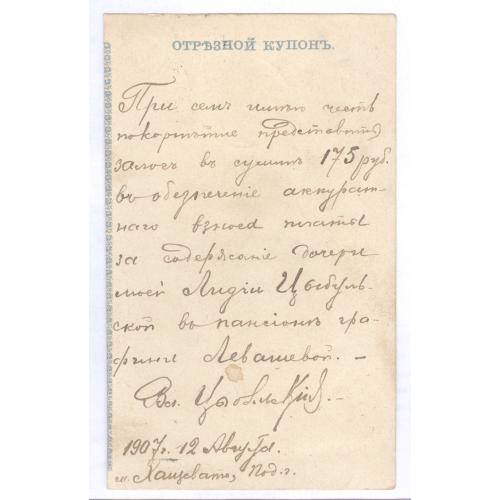 ОТРѢЗНОЙ КУПОНЪ.
При семъ имѣю честь
покорнѣйше представить
залогъ въ суммѣ 175 руб.
въ обезпеченіе аккурат-
наго взноса платы
за содержаніе дочери
моей Лидіи Цыбуль-
ской въ пансіонѣ гра-
фини Левашевой. —
Вл. Цыбульскій. —
1907 г. 12 Августа.
м. Хащевато, Под. г.